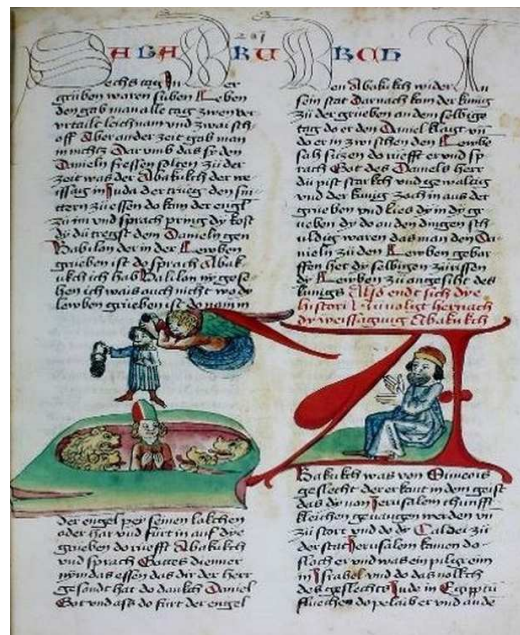 sechs tag In der
gruben waren siben Leben
den gab man alle tag zwen ver
urtailt leichnam und zwai sch
off Aber an der zeit gab man
in nichtz Dar umb das sy den
Danieln fressen solten zu der
zeit was der Abakukch der we
issag in Juda der trueg den sni
tern zu essen do kam der engl
zu im und sprach pring dy kost
dy du tregst dem Danieln gen
Babilon der in der Lewben
grueben ist do sprach Abak
ukch ich hab Babilan ny gese
hen ich wais auch nicht wo de
lewben grueben ist do nam in
der engel pey seinen
oder har und furt in auf dye
grueben do ruefft Abakukch
und sprach Gottes diener
nym das essen das dir der herr
gesandt hat do dankch Daniel
Got und ass do furt der engel
den Abakukch wider An
sein stat Darnach kam der kunig
zu der grueben an dem selbige
tag do er den Daniel klagt un
do er in zwischen den Lewbe
sah siczen do rueft er und sp
rach Got des Daniels herr
du pist starkch und gewaltig
und der kunig zoch in aus der
grueben und lies dy in dy gr
ueben dy do an den dingen sch
uldig waren das man den Da
nieln zu den Lewben gebar
ffen het dy selbigen zurissen
dy Lewben zu angesicht des
kunigs Also endt sich dye
histori hernach
dy weissagung Abakukch
A
Bakukch was von
geslecht der erkant in dem geist
das dy von Jerusalem chunfft
kleichen gevangen werden un
zu stort und do dy Caldei zu
der stat Jerusalem kamen do
floch er und was ein pilgreim
in Israhel und do das volkch
des geslechts Jude in Egipptu
fluechen do pelaib er und ande